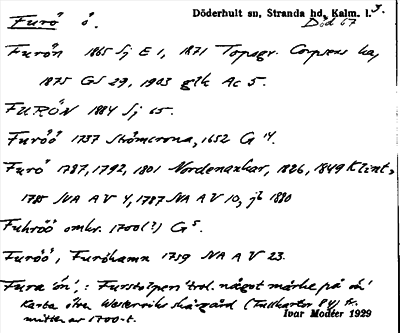 Furö ö. Döderhult sn, Stranda hd, Kalm. l. 3.
Död 57
Furön 1865 Sj E 1, 1871 Topogr. Corpsens ka,
1875 GS 29, 1903 glk Ac 5.
FURÖN 1884 Sj 65.
Furöö 1737 Strömcrona, 1652 G 14.
Furö 1787, 1792, 1801 Nordenankar, 1826, 1849 Klint,
1785 SVA A V 4, 1787 SVA A V 10, jb 1880
Fuhröö omkr. 1700(?) G 5.
Furöö, Furöhamn 1759 NA A V 23.
Fura 'ön', : Furstolpen 'trol. något märke på ön'
Karta öfver Westerviks skärgård (Fullkartor 84) fr.
mitten av 1700-t.
Ivar Modéer 1929